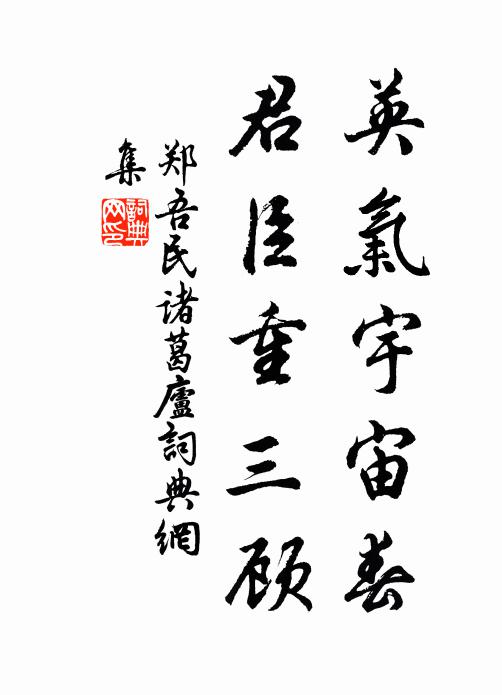 英氣宇宙春
君臣重三顾
郑吾民诸葛廬詞典網
集
詞典
网印